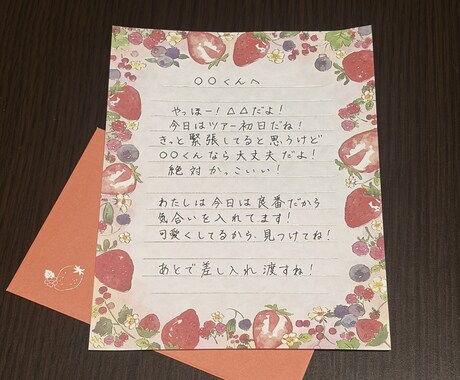 ○○くんへ
やっほー!△△だよ!
今日はツアー初日だね!
きっと緊張してると思うけど
○○くんなら大丈夫だよ!
絶対かっこいい!
わたしは今日は良番だから
気合いを入れてます!
可愛くしてるから、見つけてね!
あとで差し入れ渡すね!